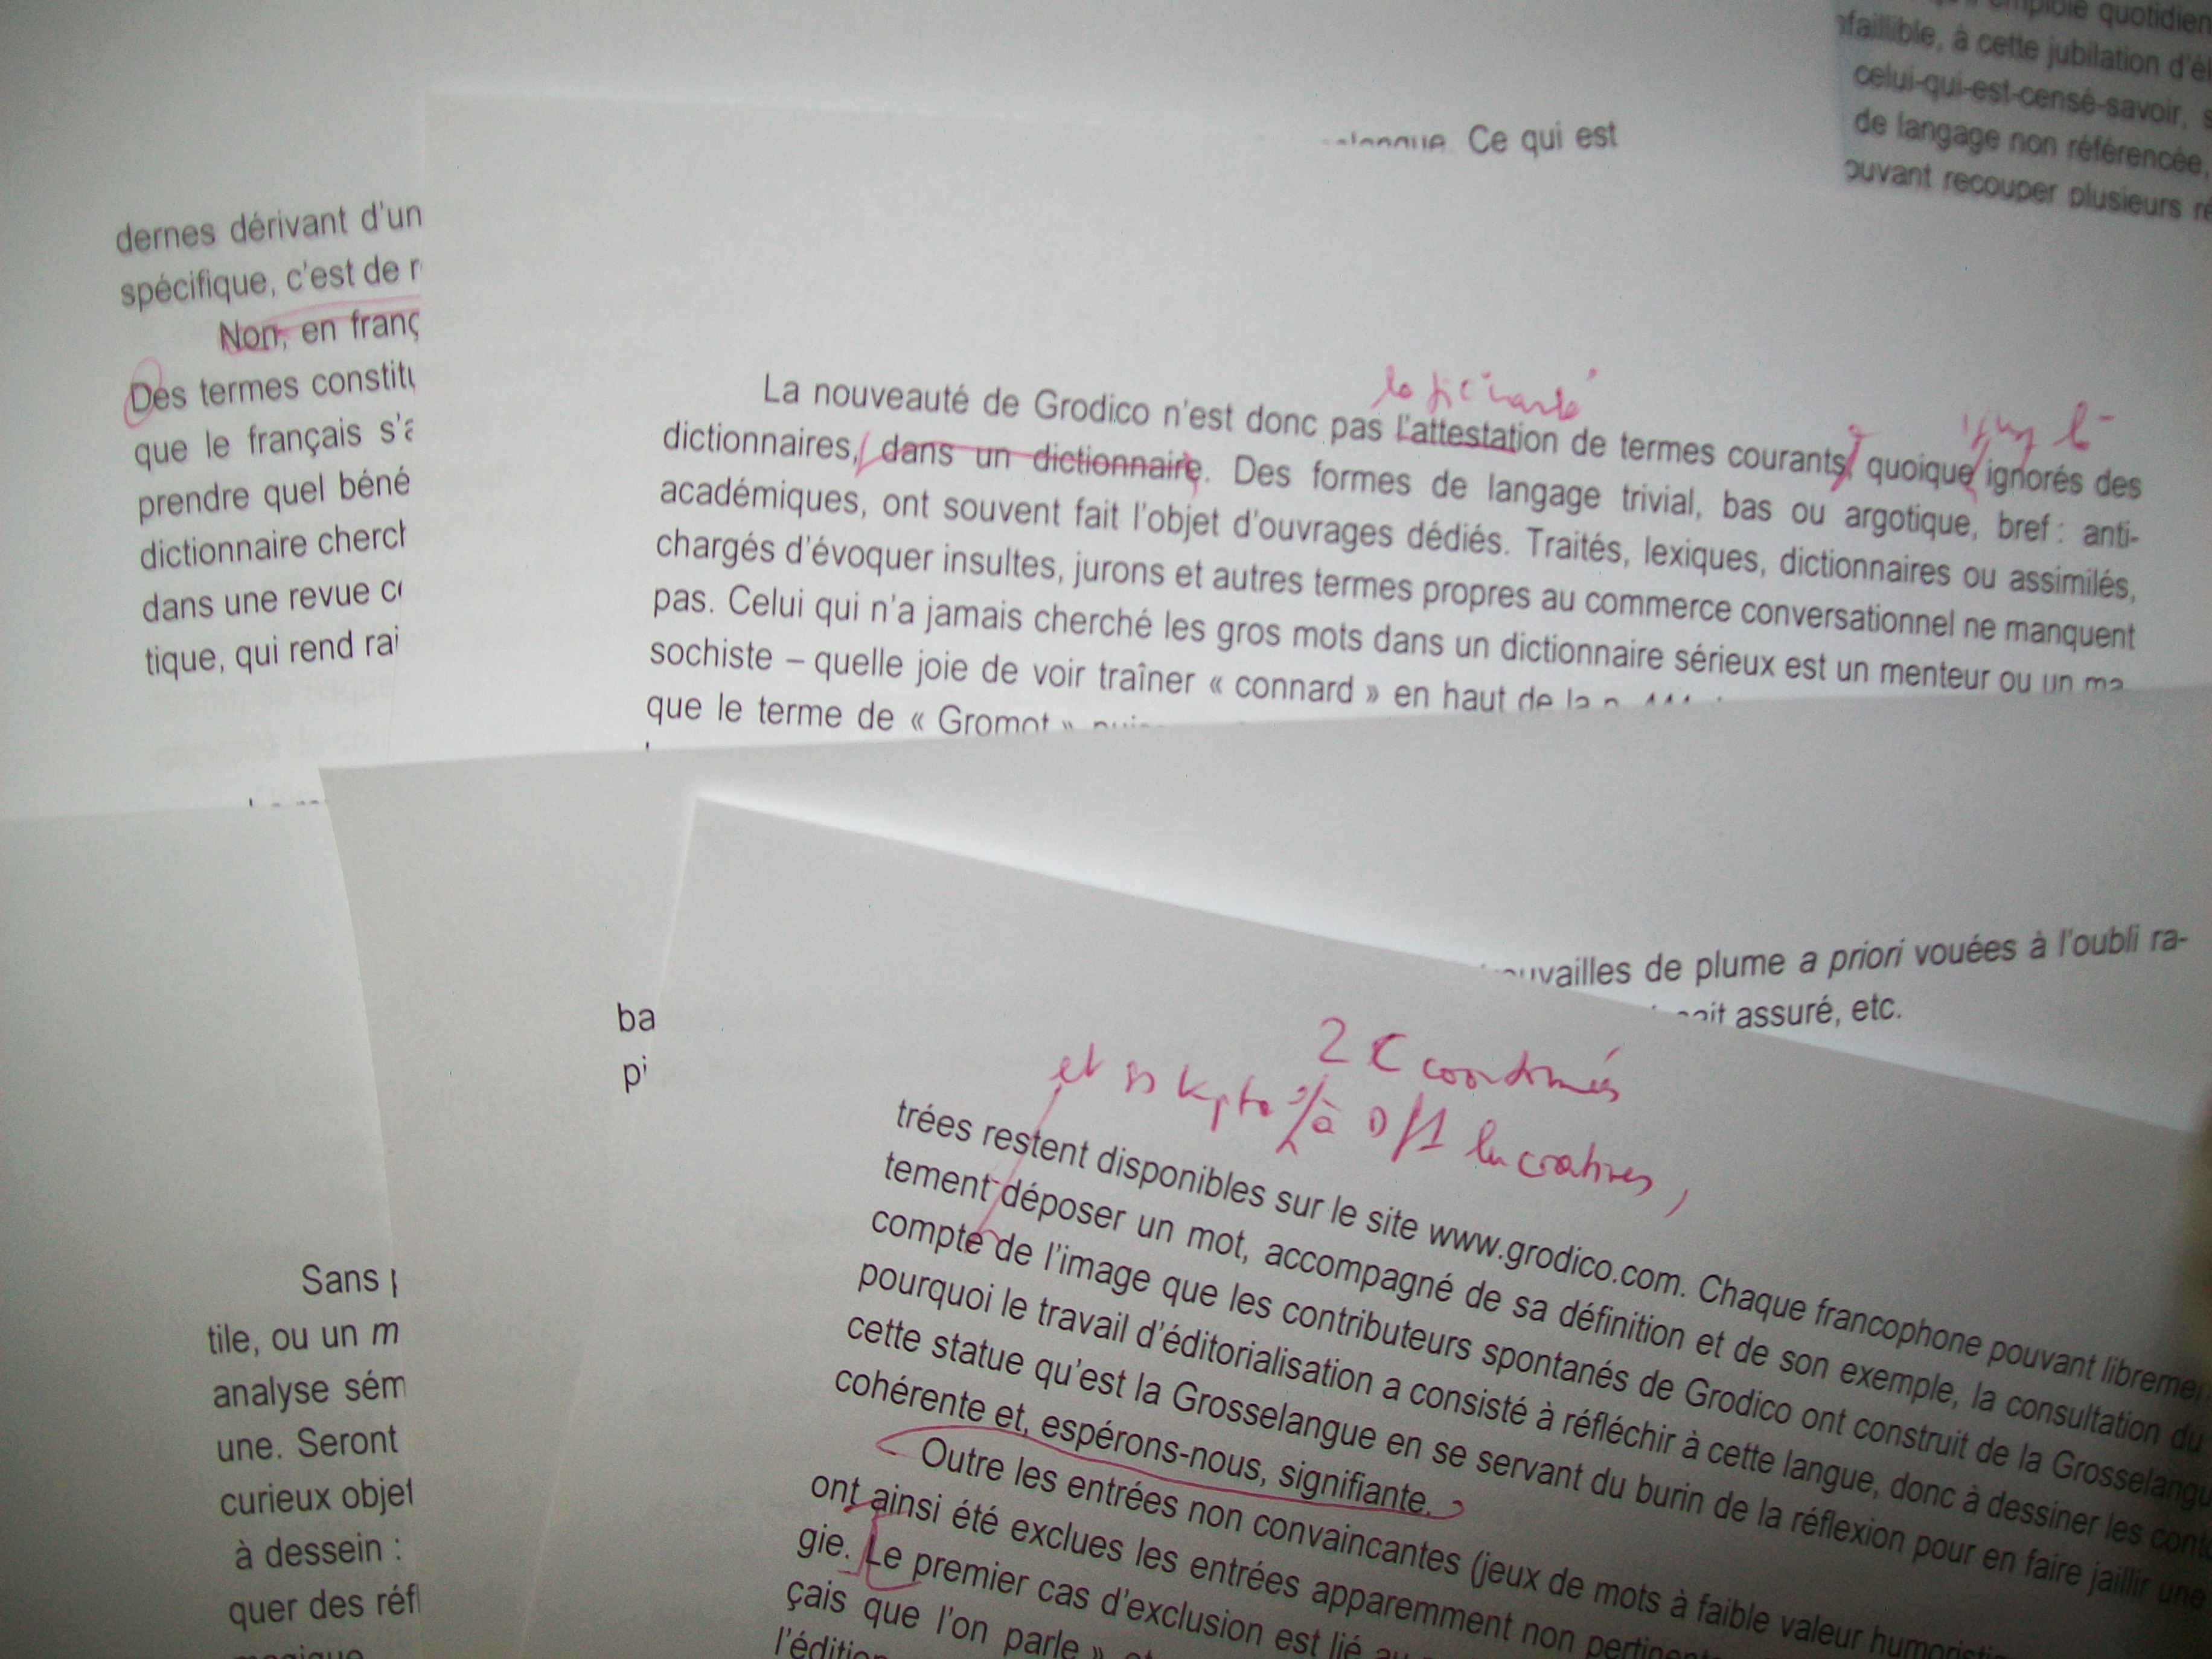 emploie quotidien
faillible, à cette jubilation d'él
celui-qui-est-censé-savoir, s
de langage non référencée,
ouvant recouper plusieurs ré
Ce qui est
dernes dérivant d'un
spécifique, c'est de r
Non, en franç
Des termes constitu
que le français s'a
prendre quel béné
dictionnaire cherch
dans une revue co
tique, qui rend rai
La nouveauté de Grodico n'est donc pas l'attestation de termes courants, quoique ignorés des
dictionnaires, dans un dictionnaire. Des formes de langage trivial, bas ou argotique, bref : anti-
académiques, ont souvent fait l'objet d'ouvrages dédiés. Traités, lexiques, dictionnaires ou assimilés,
chargés d'évoquer insultes, jurons et autres termes propres au commerce conversationnel ne manquent
pas. Celui qui n'a jamais cherché les gros mots dans un dictionnaire sérieux est un menteur ou un ma
sochiste – quelle joie de voir traîner « connard » en haut de la p.
que le terme de « Gromot »
ouvailles de plume a priori vouées à l'oubli ra-
ait assuré, etc.
ba
pi
2 coordonnés
et à lucratives,
trées restent disponibles sur le site www.grodico.com. Chaque francophone pouvant libremen
tement déposer un mot, accompagné de sa définition et de son exemple, la consultation du
compte de l'image que les contributeurs spontanés de Grodico ont construit de la Grosselangu
pourquoi le travail d'éditorialisation a consisté à réfléchir à cette langue, donc à dessiner les conto
cette statue qu'est la Grosselangue en se servant du burin de la réflexion pour en faire jaillir une
cohérente et, espérons-nous, signifiante.
Outre les entrées non convaincantes (jeux de mots à faible valeur humoristi
ont ainsi été exclues les entrées apparemment non pertinent
gie. Le premier cas d'exclusion est lié au
çais que l'on parle »
l'édition
Sans p
tile, ou un m
analyse sém
une. Seront
curieux objet
à dessein :
quer des réfl
magique